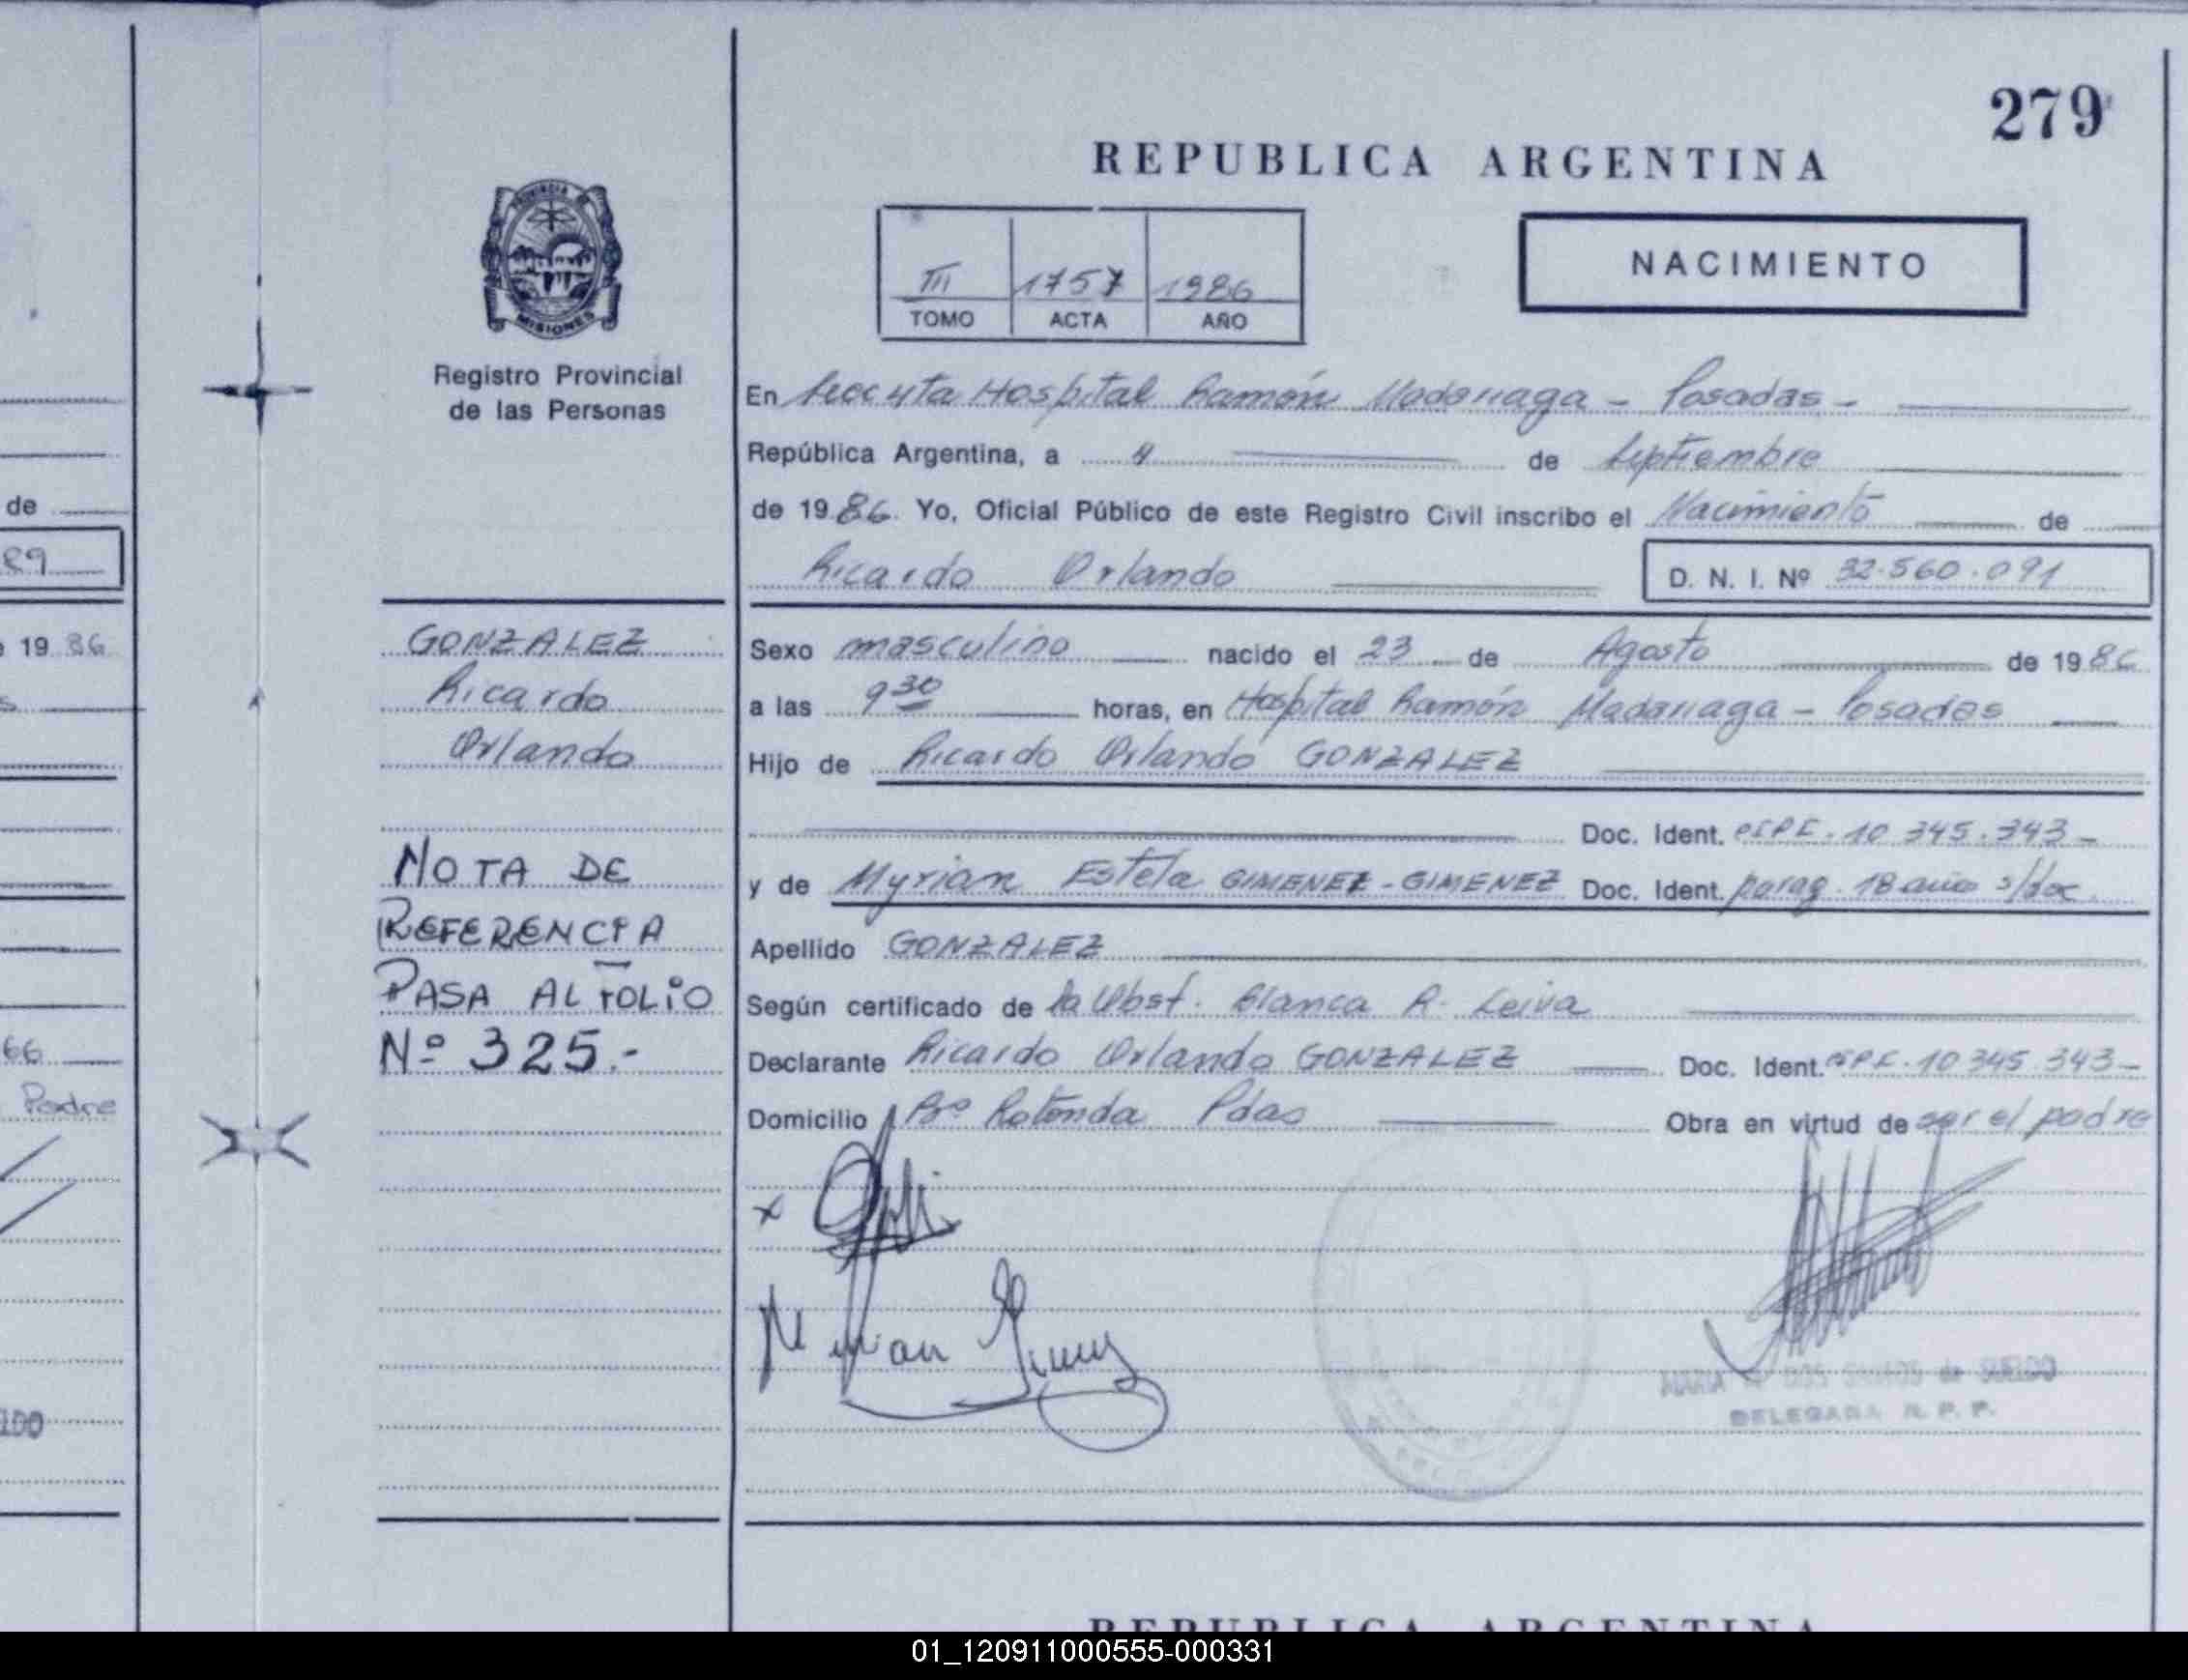 279
REPUBLICA ARGENTINA
PROVINCIA DE
MISIONES
Registro Provincial
de las Personas
III 1757 1986
TOMO ACTA AÑO
NACIMIENTO
En Hospital Ramón Madariaga - Posadas -
República Argentina, a 4 de Septiembre
de 1986. Yo, Oficial Público de este Registro Civil inscribo el Nacimiento de
Ricardo Orlando D. N. I. Nº 32.560.091
Sexo masculino nacido el 23 de Agosto de 1986
a las 9 30 horas, en Hospital Ramón Madariaga - Posadas
Hijo de Ricardo Orlando GONZALEZ
Doc. Ident. 10 345.343 -
y de Myrian Estela GIMENEZ - GIMENEZ Doc. Ident. parag. 18 años s/doc.
Apellido GONZALEZ
Según certificado de la Obst. Blanca R. Leiva
Declarante Ricardo Orlando GONZALEZ Doc. Ident. 10 345.343 -
Domicilio Bº Rotonda Pdas Obra en virtud de ser el padre
GONZALEZ
Ricardo
Orlando
NOTA DE
REFERENCIA
PASA AL FOLIO
Nº 325.-
DELEGADA R. P. P.
de
89
19 86
66
Padre
REPUBLICA ARGENTINA
01_120911000555-000331